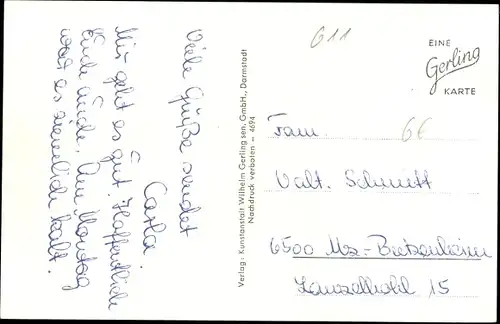 Viele Grüße sendet
Carla.
Mir geht es gut. Hoffentlich
Euch auch. Am Montag
war es ziemlich kalt.
Verlag: Kunstanstalt Wilhelm Gerling sen. GmbH., Darmstadt
Nachdruck verboten – 4694
611
EINE
Gerling
KARTE
Fam.
6€
Valt. Schmitt
6500 Mz-Bretzenheim
15